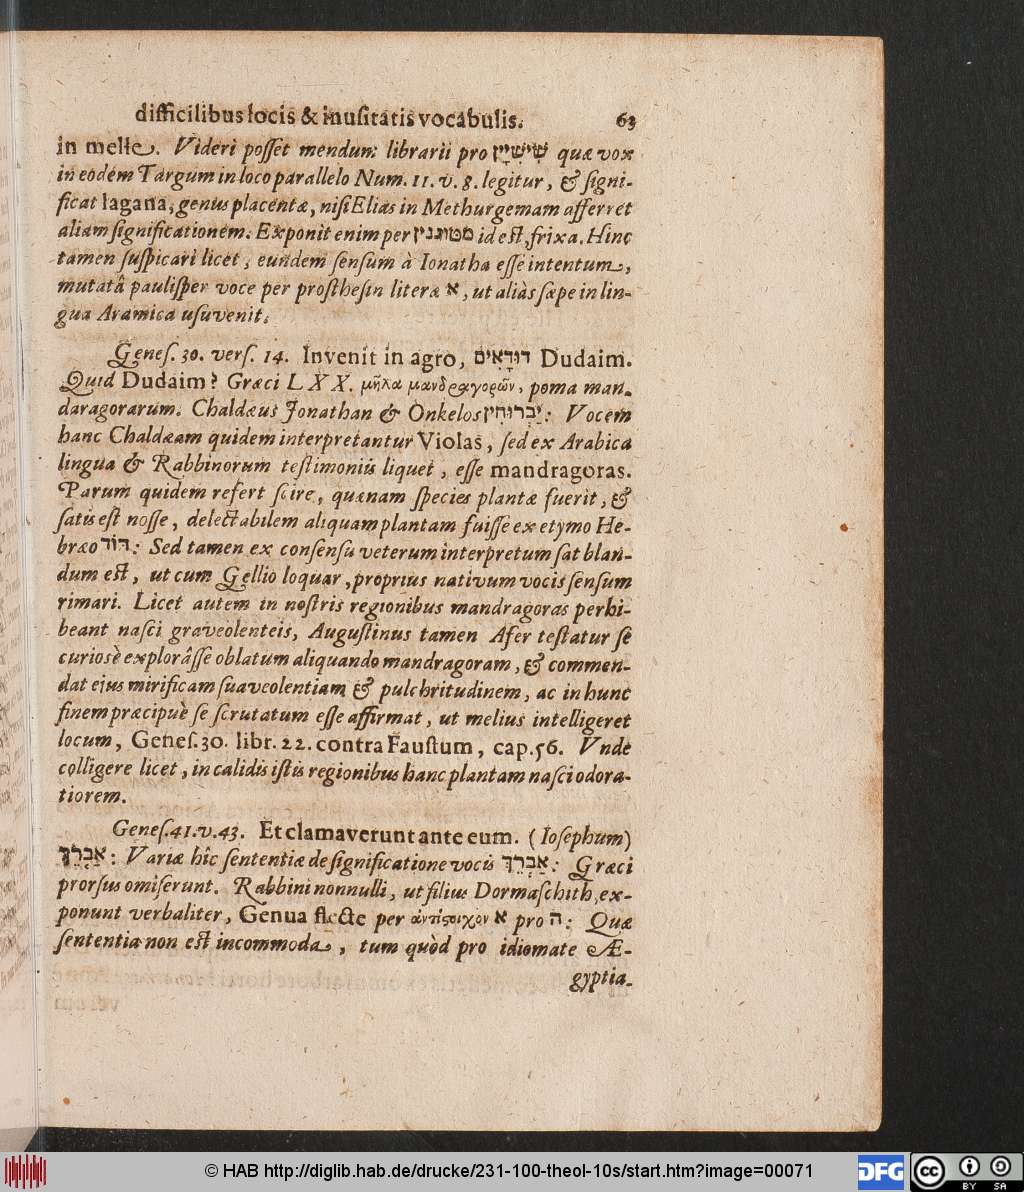 difficilibus locis & inusitatis vocabulis. 63
in melle. Videri posset mendum librarii pro שִׁישִׁיָין quæ vox
in eodém Targum in loco parallelo Num. 11. v. 8. legitur, & signi-
ficat lagana, genus placentæ, nisi Elias in Methurgemam afferret
aliam significationem. Exponit enim per מטוגנין id est, frixa. Hinc
tamen suspicari licet, eundem sensum à Ionatha esse intentum,
mutatâ paulisper voce per prosthesin literæ א, ut aliàs sæpe in lin-
gua Aramica usuvenit.
Genes. 30. vers. 14. Invenit in agro, דוּדָאִים Dudaim.
Quid Dudaim? Græci LXX. μῆλα μανδραγορῶν, poma man-
daragorarum. Chaldæus Jonathan & Onkelos יַבְרוּחִין: Vocem
hanc Chaldæam quidem interpretantur Violas, sed ex Arabica
lingua & Rabbinorum testimoniis liquet, esse mandragoras.
Parum quidem refert scire, quænam species plantæ fuerit, &
satis est nosse, delectabilem aliquam plantam fuisse ex etymo He-
bræo דּוֹד: Sed tamen ex consensu veterum interpretum sat blan-
dum est, ut cum Gellio loquar, proprius nativum vocis sensum
rimari. Licet autem in nostris regionibus mandragoras perhi-
beant nasci graveolenteis, Augustinus tamen Afer testatur se
curiosè explorâsse oblatum aliquando mandragoram, & commen-
dat ejus mirificam suaveolentiam & pulchritudinem, ac in hunc
finem præcipuè se scrutatum esse affirmat, ut melius intelligeret
locum, Genes. 30. libr. 22. contra Faustum, cap. 56. Vnde
colligere licet, in calidis istis regionibus hanc plantam nasci odora-
tiorem.
Genes. 41. v. 43. Et clamaverunt ante eum. (Iosephum)
אַבְרֵךְ: Variæ hîc sententiæ de significatione vocis אַבְרֵךְ: Græci
prorsus omiserunt. Rabbini nonnulli, ut filius Dormaschith, ex-
ponunt verbaliter, Genua flecte per ἀντίστοιχον א pro ה: Quæ
sententia non est incommoda, tum quòd pro idiomate Æ-
gyptia-
© HAB http://diglib.hab.de/drucke/231-100-theol-10s/start.htm?image=00071
DFG
cc
BY SA